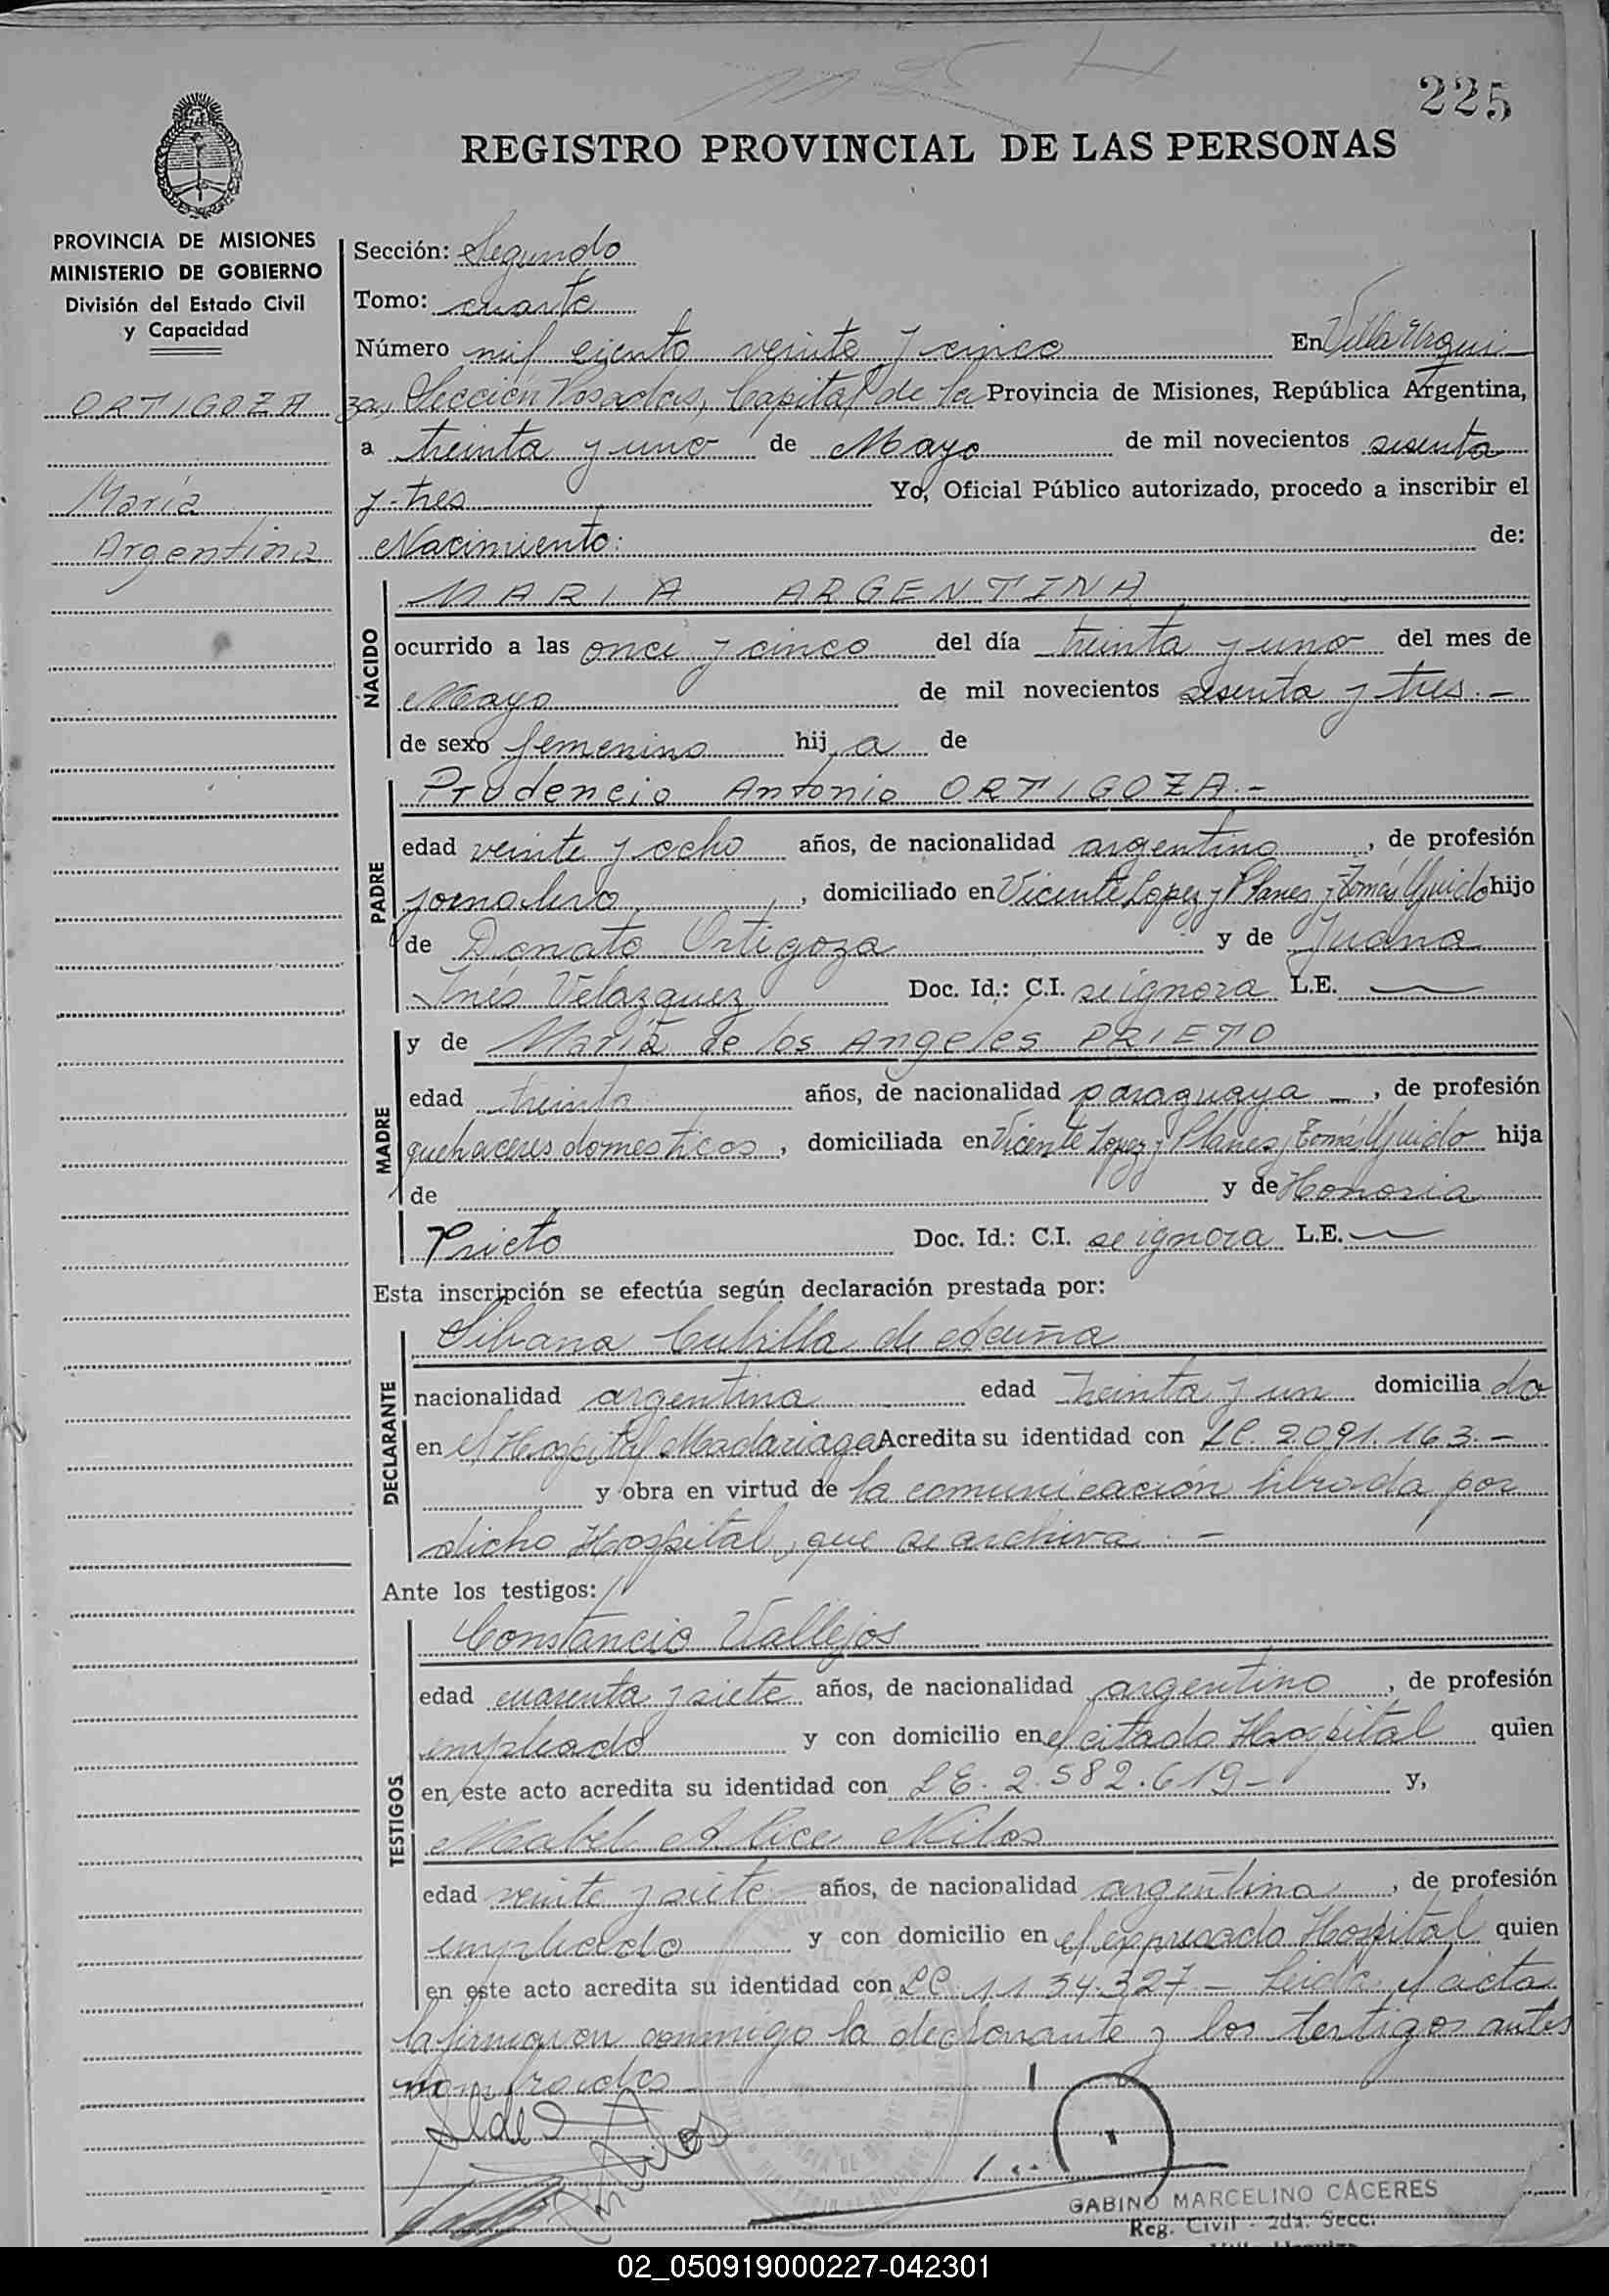 225
REGISTRO PROVINCIAL DE LAS PERSONAS
PROVINCIA DE MISIONES
MINISTERIO DE GOBIERNO
División del Estado Civil
y Capacidad
ORTIGOZA
María
Argentina
Sección: Segundo
Tomo: cuarto
Número mil ciento veinte y cinco En Villa Urqui
za, Sección Posadas, Capital de la Provincia de Misiones, República Argentina,
a treinta y uno de Mayo de mil novecientos sesenta
y tres Yo, Oficial Público autorizado, procedo a inscribir el
Nacimiento: de:
NACIDO
MARIA ARGENTINA
ocurrido a las once y cinco del día treinta y uno del mes de
Mayo de mil novecientos sesenta y tres.-
de sexo femenino hij a de
PADRE
Prudencio Antonio ORTIGOZA.-
edad veinte y ocho años, de nacionalidad argentino, de profesión
jornalero, domiciliado en Vicente Lopez y Planes y Tomás Guido hijo
de Donato Ortigoza y de Juana
Inés Velazquez Doc. Id.: C.I. se ignora L.E.
MADRE
y de María de los Angeles PRIETO
edad treinta años, de nacionalidad paraguaya, de profesión
quehaceres domesticos, domiciliada en Vicente Lopez y Planes y Tomás Guido hija
de y de Honoria
Prieto Doc. Id.: C.I. se ignora L.E.
Esta inscripción se efectúa según declaración prestada por:
DECLARANTE
Silvana Cubilla de Acuña
nacionalidad argentina edad treinta y un domicilia da
en el Hospital Madariaga Acredita su identidad con LC. 2.091.163.-
y obra en virtud de la comunicación librada por
dicho Hospital, que se archiva.-
Ante los testigos:
TESTIGOS
Constancio Vallejos
edad cuarenta y siete años, de nacionalidad argentino, de profesión
empleado y con domicilio en el citado Hospital quien
en este acto acredita su identidad con LE. 2.582.619- y,
Mabel Alicia Nilos
edad veinte y siete años, de nacionalidad argentina, de profesión
empleada y con domicilio en el expresado Hospital quien
en este acto acredita su identidad con LC. 1134.327- Leida el acta
la firmaron conmigo la declarante y los testigos antes
nombrados
GABINO MARCELINO CÁCERES
Reg. Civil - 2da. Secc.
02_050919000227-042301